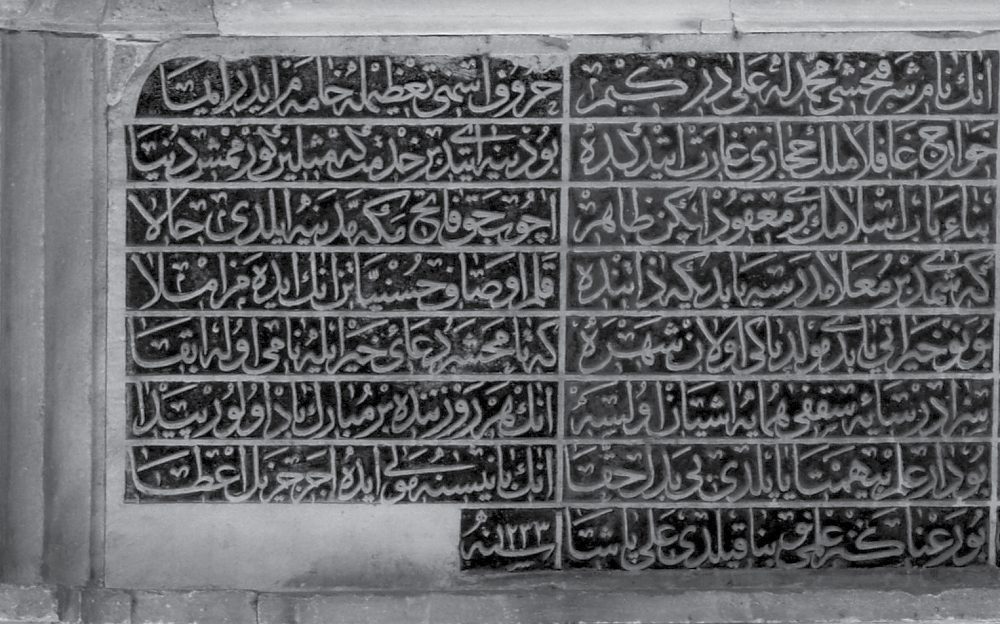 انك نام شرفبخشی محمد له علی در كیم حروف اسمنی تعظیمله خامه م ایدر ایما
خوارج عافلا ملك حجازی غارت ایتدكده بو دینه ایتدی بر خدمت كه مثلین كورممشدر دنیا
بناء باب اسلامك بری معقود ایكن ظاهر اچوب حق فاتح مكه مدینه ایلدی حالا
كه شمدی بر معلا مدرسه یابدی كه ذاتنده قلم اوصاف حسنیاتن انك ایده مز املا
و بو خیراتی یابدی مولد پاكی اولان شهره كه تا محشر دعای خیر ایله نامی اوله ابقا
سزادر سایه سقفی همایه اشیان اولسه انك هر روزنندن بر مبارك باد اولور پیدا
بو دار علمه همت یابلدی بی بدل حقا انك بانیسنه مولی ایده اجر جزیل اعطا
بو رعنا كنز علمی حق بنا قیلدی علی پاشا سنه ١٢٢٣